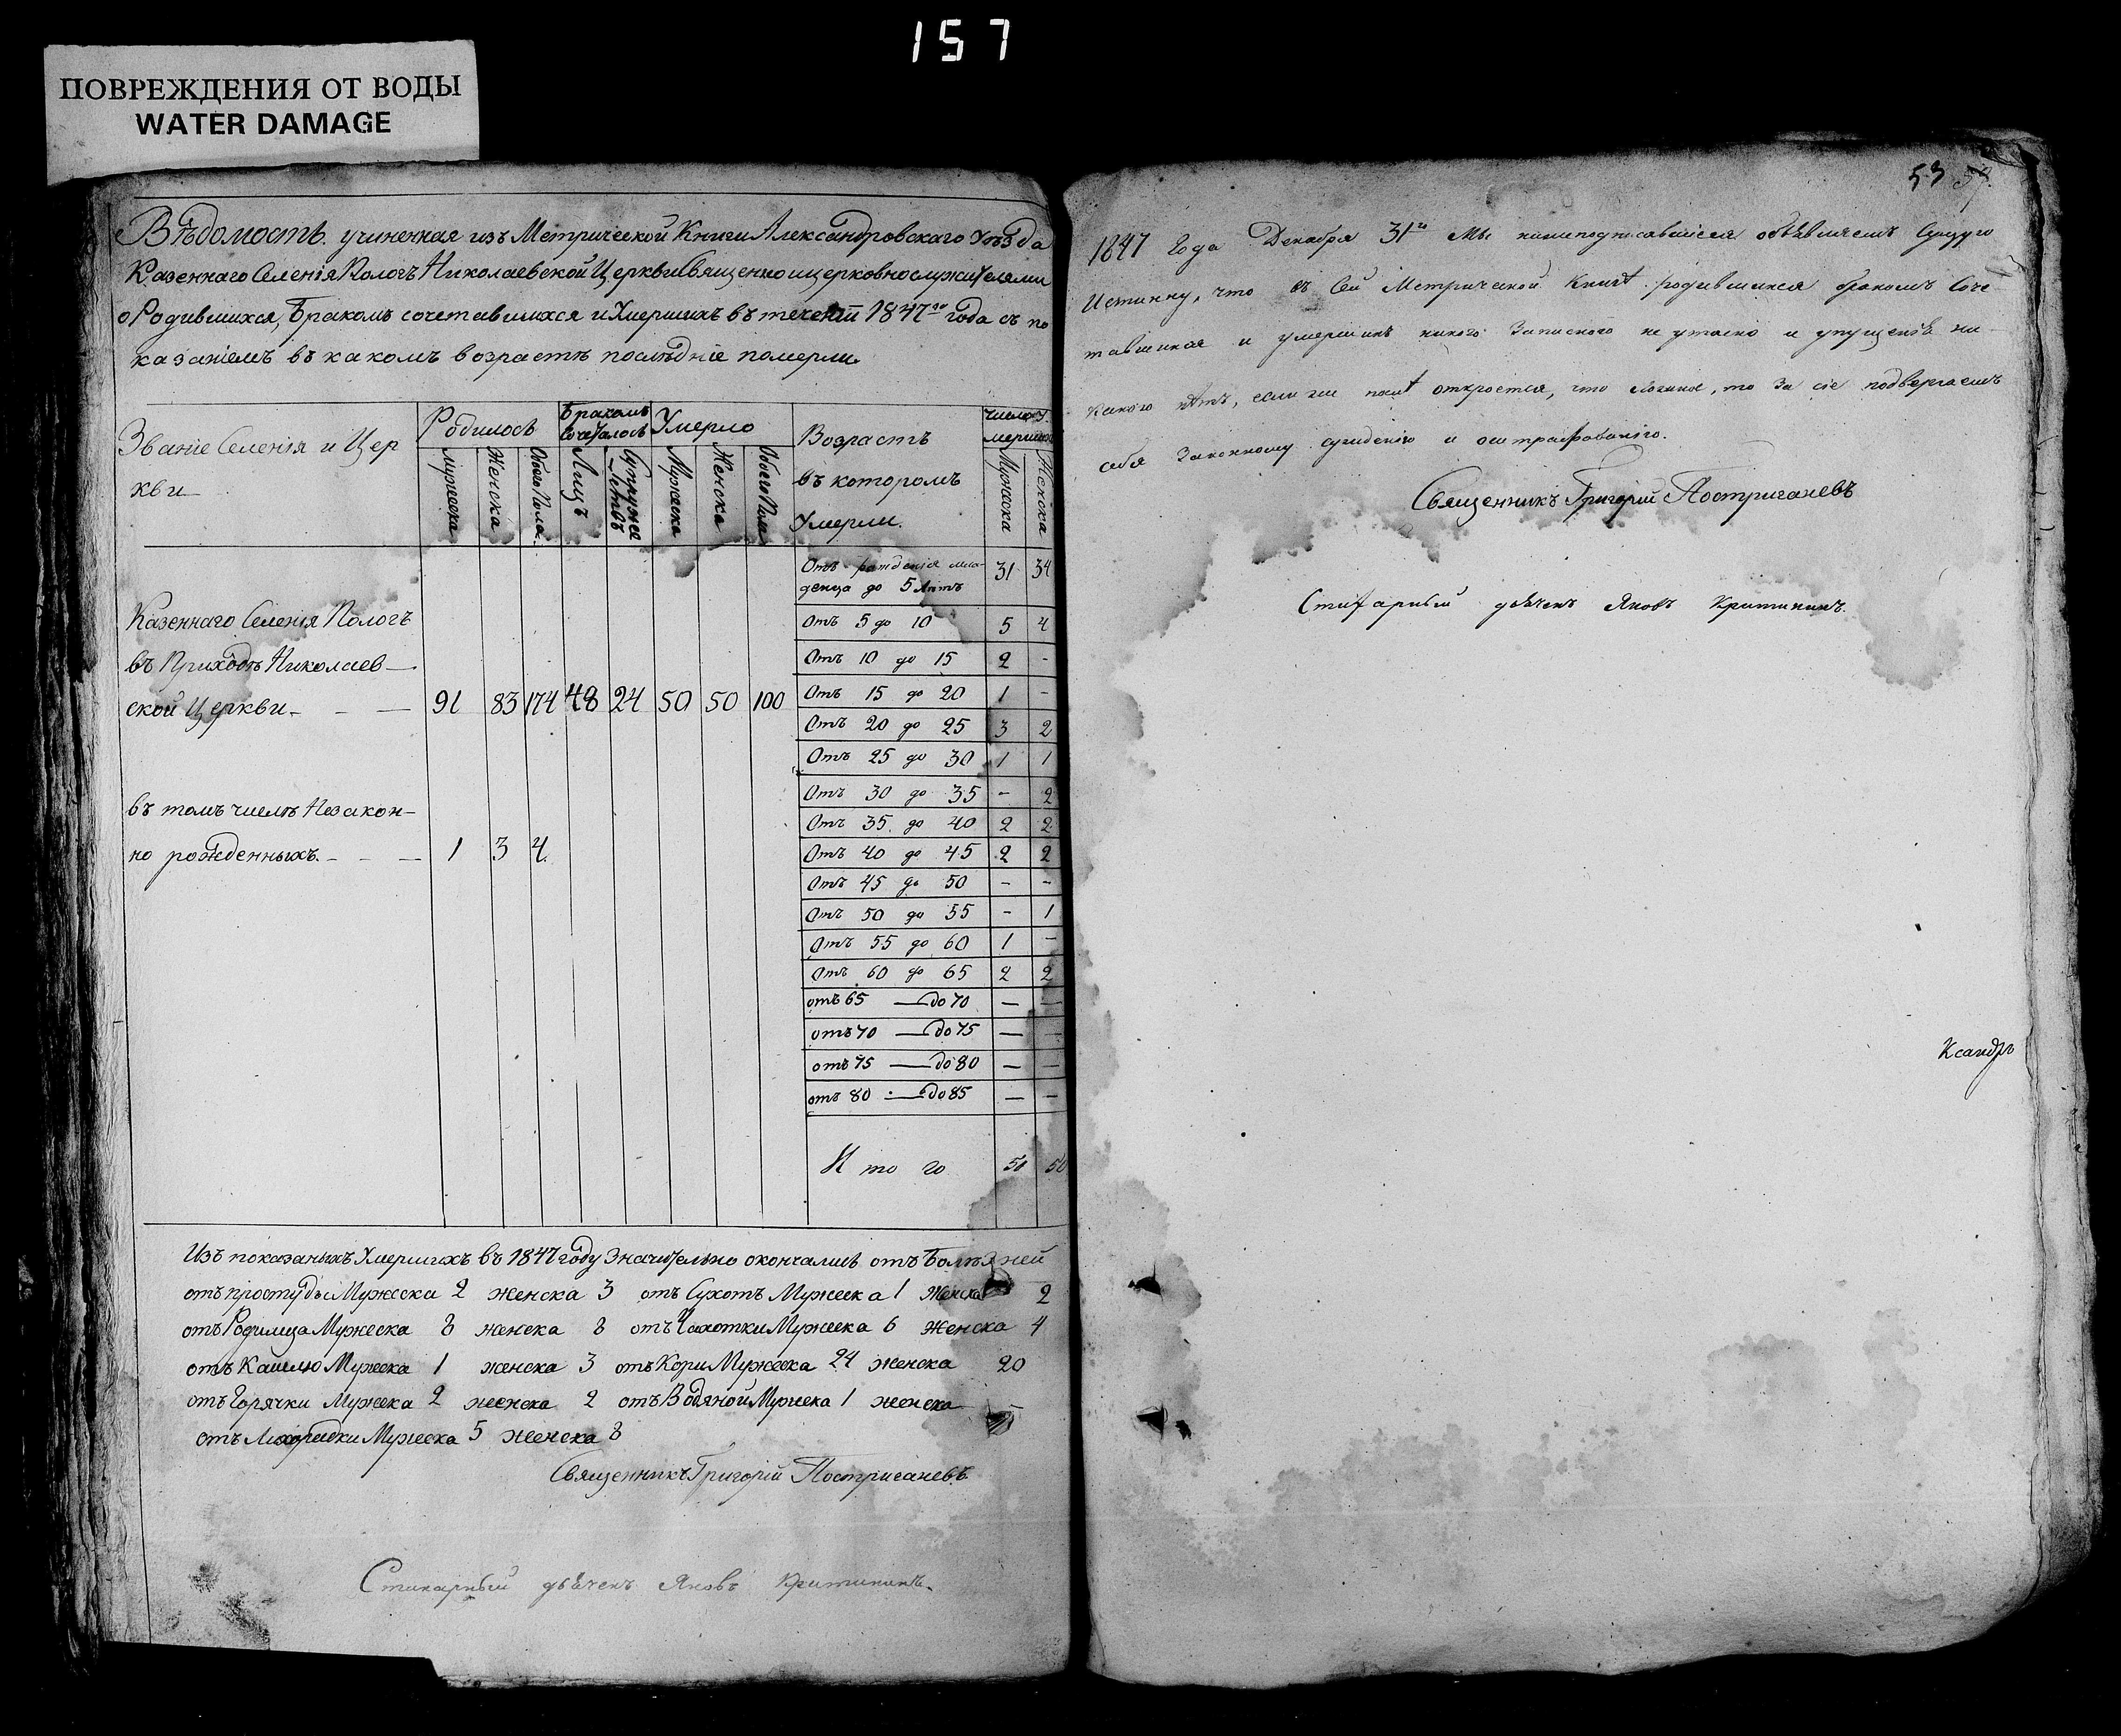 157
ПОВРЕЖДЕНИЯ ОТ ВОДЫ
WATER DAMAGE
Вѣдомость учиненная изъ Метрической Книги Александровскаго Уѣзда
Казеннаго Селенія Пологъ Николаевской Церкви Священно и церковнослужителями
о Родившихся, Бракомъ сочетавшихся и Умершихъ въ теченіи 1847го года съ по
казаніемъ въ какомъ возрастѣ послѣдніе померли.
Званіе Селенія и Цер
кви
Родилось
Бракомъ
сочеталось
Умерло
Возрастъ
въ которомъ
Умерли.
число у
мершихъ
Мужеска
Женска
Обоего Пола
Лицъ
Супруже
ствъ
Мужеска
Женска
Обоего Пола
Мужеска
Женска
Отъ рожденія мла-
денца до 5 лѣтъ 31 34
Казеннаго Селенія Пологъ
въ Приходѣ Николаев-
ской Церкви - - — 91 83 174 48 24 50 50 100
Отъ 5 до 10 5 4
Отъ 10 до 15 2 -
Отъ 15 до 20 1 -
Отъ 20 до 25 3 2
Отъ 25 до 30 1 1
Отъ 30 до 35 - 2
Отъ 35 до 40 2 2
Отъ 40 до 45 2 2
Отъ 45 до 50 - -
Отъ 50 до 55 - 1
Отъ 55 до 60 1 -
Отъ 60 до 65 2 2
отъ 65 — до 70 — —
отъ 70 — до 75 — —
отъ 75 — до 80 — —
отъ 80 — до 85 — —
Итого 50 50
въ томъ числѣ Незакон-
но рожденныхъ. - - — 1 3 4.
Изъ показаныхъ Умершихъ въ 1847 году значительно окончались отъ Болѣзней
отъ простуды Мужеска 2 женска 3 отъ Сухотъ Мужеска 1 Женска 2
отъ Родимца Мужеска 8 женска 8 отъ Чахотки Мужеска 6 Женска 4
отъ Кашлю Мужеска 1 женска 3 отъ Кори Мужеска 24 женска 20
отъ Горячки Мужеска 2 женска 2 отъ Водяной Мужеска 1 женска -
отъ Лихорадки Мужеска 5 Женска 8
Священникъ Григорій Постригачевъ
Стихарный дьячекъ Яковъ Критининъ.
53
1847 Года Декабря 31го Мы нижеподписавшіеся объявляемъ Сущую
Истинну, что въ Сей Метрической Книгѣ родившихся бракомъ Соче-
тавшихся и умершихъ никого Записного не утаено и упущенія ни-
какого нѣтъ, если же откроется, что ложное, то за сіе подвергаемъ
себя Законному сужденію и оштрафованію.
Священникъ Григорій Постригачевъ
Стихарный дьячекъ Яковъ Критининъ.
Ксандръ